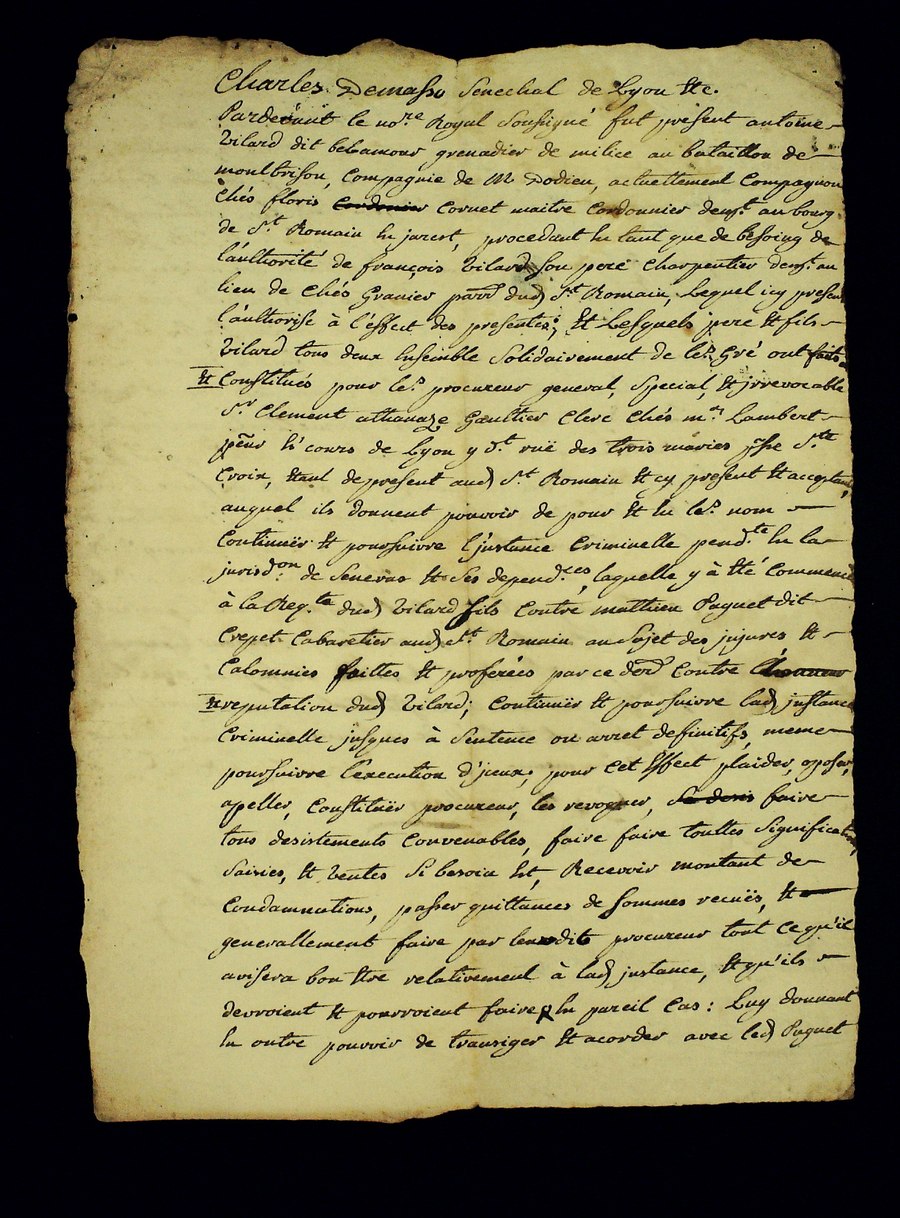 Charles Demasso Senechal de Lyon &tc.
Pardevant le no.re Royal Soussigné fut présent antoine
Vilard dit belamour grenadier de milice au bataillon de
montbrison, Compagnie de M Dodieu, actuellement Compagnon
chés floris Cordonier Cornet maitre Cordonnier dem.t au bourg
de S.t Romain en jarest, procedant en tant que de besoing de
l'authorité de françois Vilard son pere Charpentier dem.t au
lieu de chés Granier parr. dud S.t Romain, Lequel icy present
l'authorise à l'effect des presentes; Et Lesquels pere Et fils
Vilard tous deux Ensemble Solidairement de le.r Gré ont faits
Et Constitués pour le.r procureur general, Special, Et jrrevocable
S.r Clement athanaze Gaultier Clerc chés m.e Lambert
pr̃eur Es cours de Lyon y d.t rüe des trois maries p̃sse S.te
Croix, Etant de present aud S.t Romain Et cy present Et acceptant,
auquel ils donnent pouvoir de pour Et En le.r nom
Continuër Et poursuivre L'jnstance Criminelle pend.te En la
jurisd.on de Senevas Et Ses depend.ces, laquelle y à Eté Commencé
à la Req.te dud Vilard fils Contre mathieu Paguet dit
Crepet Cabaretier aud S.t Romain au Sujet des jnjures Et
Calomnies faittes Et proferées par ce der. Contre L'honneur
Et reputation dud Vilard; Continuër Et poursuivre lad jnstance
Criminelle jusques à Sentence ou arret deffinitifs, meme
poursuivre l'execution d'jceux, pour Cet Effect plaider, oposer,
apeller, Constituër procureur, les revoquer, Se desis faire
tous desistements Convenables, faire faire touttes Significations,
Saisies, Et Ventes Si besoin Est, Recevoir montant de
Condamnations, passer quittances de Sommes recuës, Et
generallement faire par leurdits procureur tout ce qu'il
avisera bon Etre relativement à lad jnstance, Et qu'ils
devroient Et pourroient faire En pareil Cas: Luy donnant
En outre pouvoir de transiger Et acorder avec led Paguet